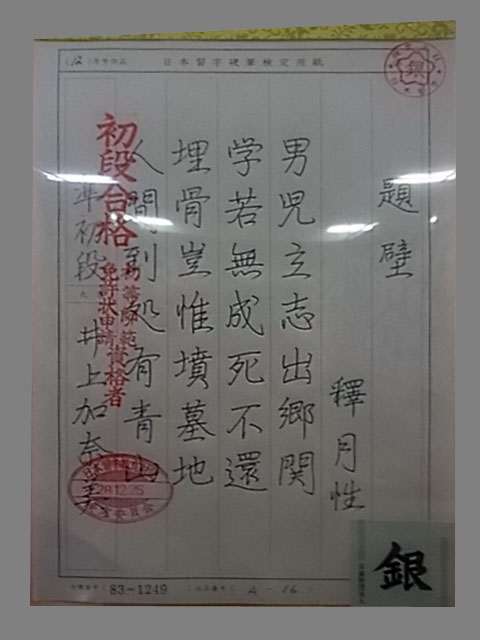 (12)月号作品 日本習字硬筆検定用紙
題壁
釋月性
男児立志出郷関
学若無成死不還
埋骨豈惟墳墓地
人間到処有青山
準初段 井上加奈美
初段合格
初等師範
免許状申請資格者
銀
29.12.25
83-1249
A-16
銀